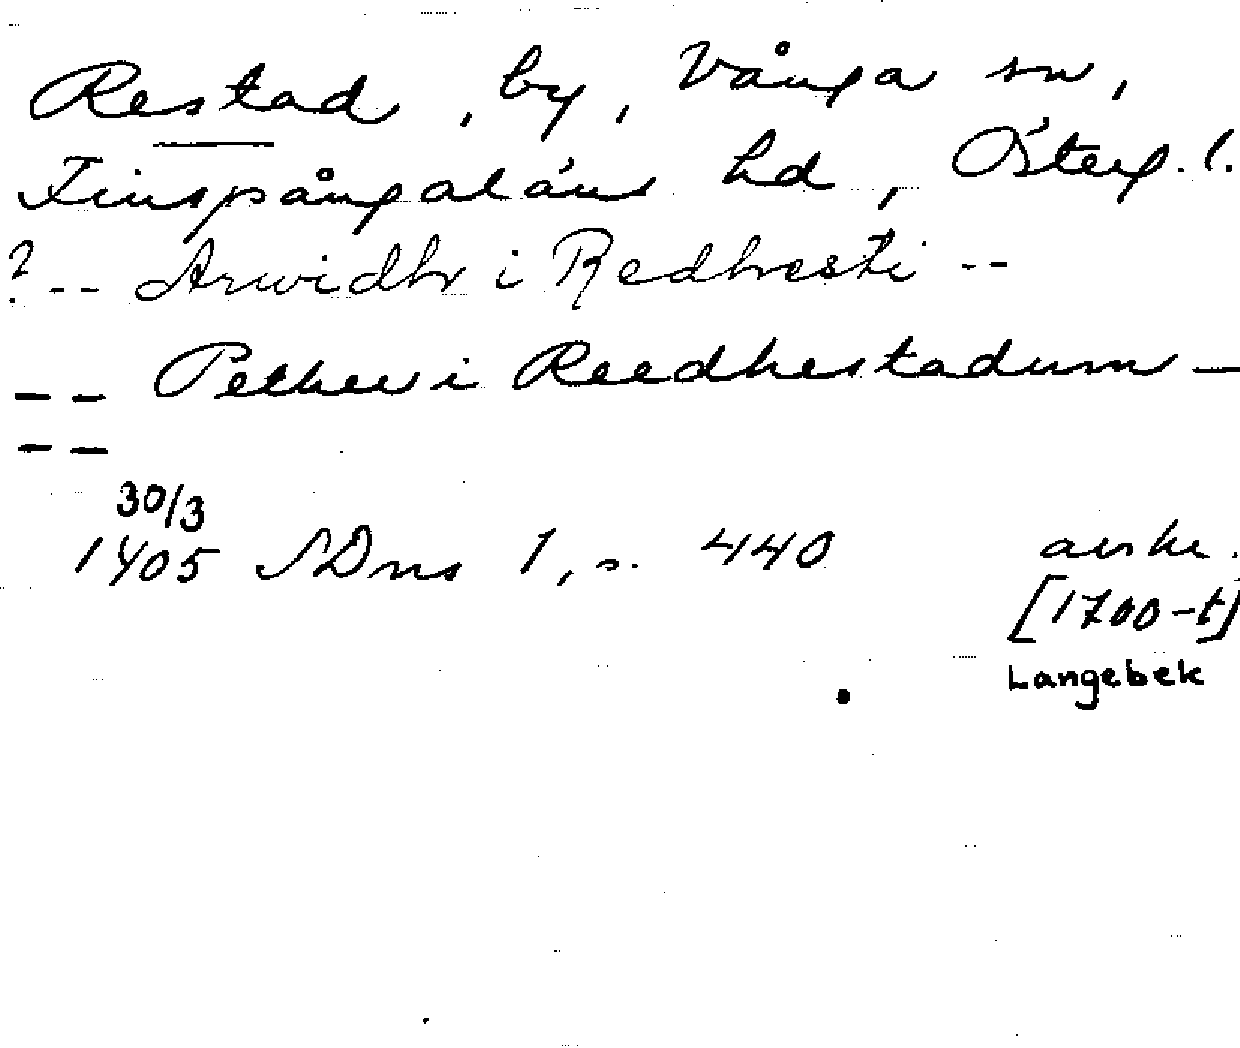 Restad, by, Vånga sn,
Finspångaläns hd, Österg. l.
? -- Arwidhr i Redhvesti --
-- Pether i Reedhestadum --
--
30/3
1405 SDns 1, s. 440 avskr.
[1700-t]
Langebek